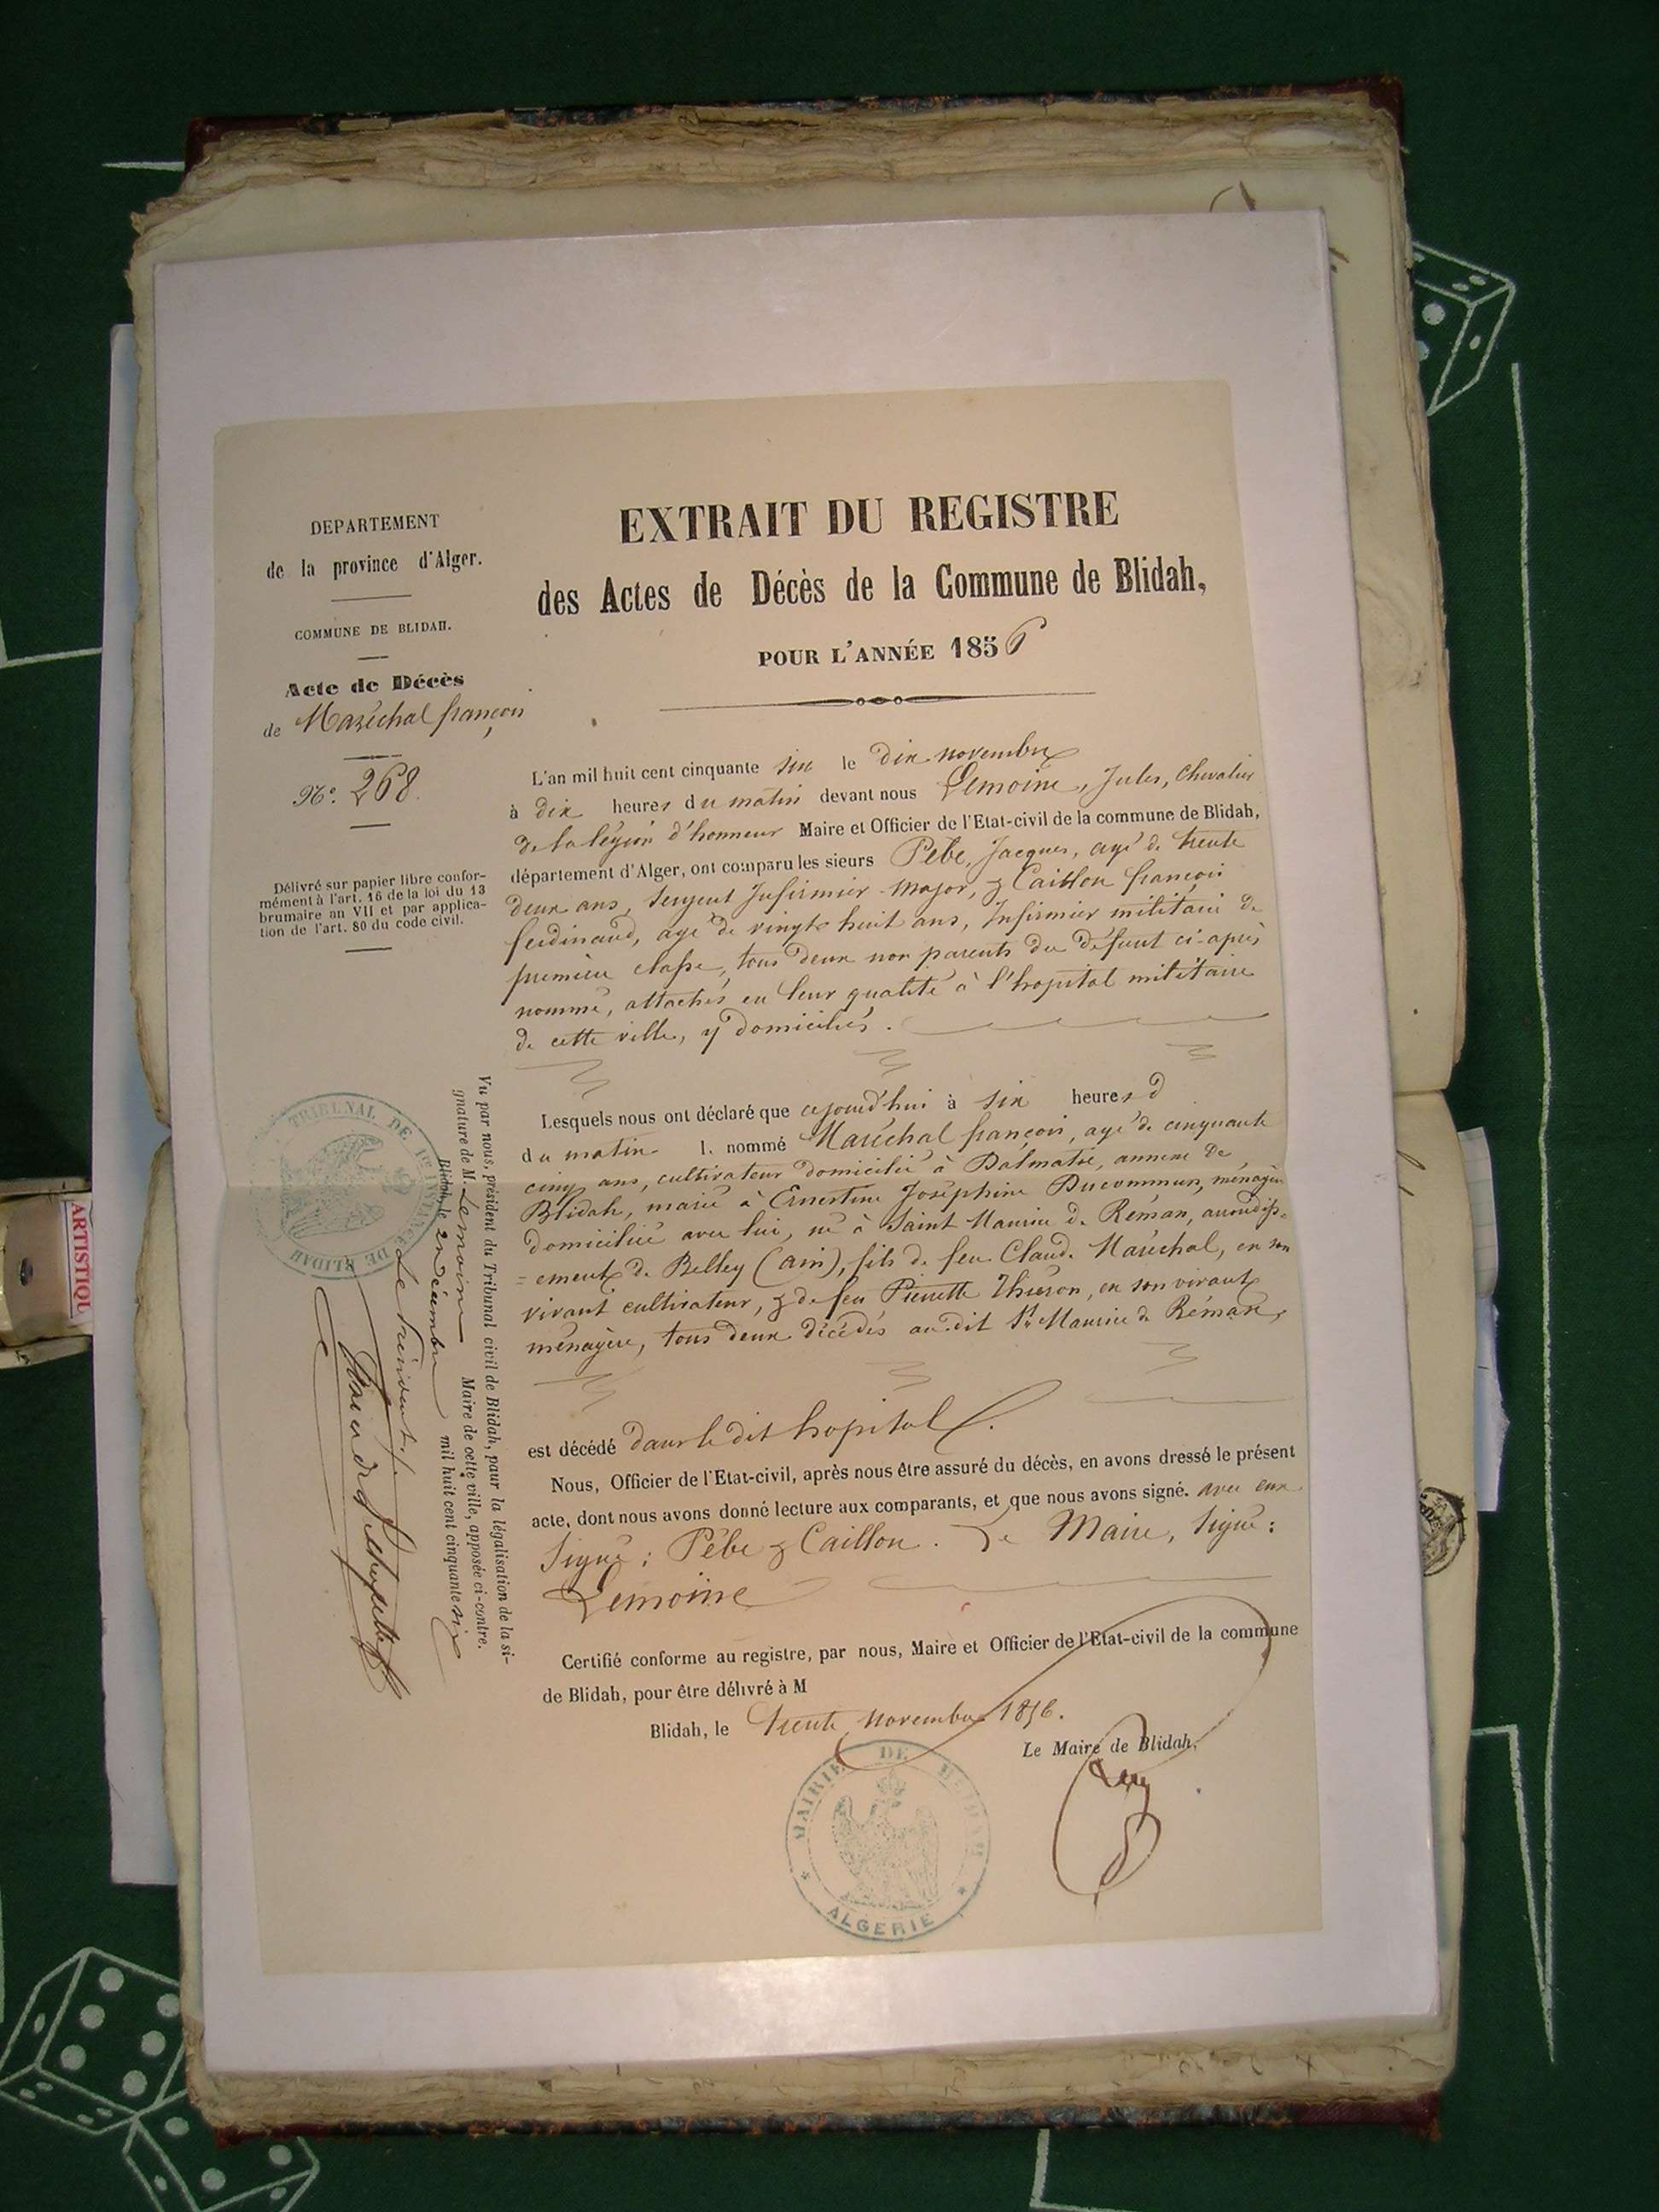 DEPARTEMENT
de la province d'Alger.
COMMUNE DE BLIDAH.
Acte de Décès
de Maréchal françois
No. 268.
Délivré sur papier libre confor-
mément à l'art. 16 de la loi du 13
brumaire an VII et par applica-
tion de l'art. 80 du code civil.
EXTRAIT DU REGISTRE
des Actes de Décès de la Commune de Blidah,
POUR L'ANNÉE 1856
L'an mil huit cent cinquante six le dix novembre
à dix heures du matin devant nous Lemoine, Jules, Chevalier
de la légion d'honneur Maire et Officier de l'Etat-civil de la commune de Blidah,
département d'Alger, ont comparu les sieurs Pèbe, Jacques, agé de trente
deux ans, Sergent Infirmier-Major, & Caillon françois
ferdinand, agé de vingt huit ans, Infirmier militaire de
première classe, tous deux non parents du défunt ci-après
nommé, attachés en leur qualité à l'hopital militaire
de cette ville, y domiciliés.
Lesquels nous ont déclaré que cejourd'hui à six heures d
du matin l. nommé Maréchal françois, agé de cinquante
cinq ans, cultivateur domicilié à Dalmatie, annexe de
Blidah, marié à Ernestine Joséphine Ducommun, ménagère
domiciliée avec lui, né à Saint Maurice de Réman, arrondiss-
=ement de Belley (ain), fils de feu Claude Maréchal, en son
vivant cultivateur, & de feu Pierrette Thieron, en son vivant
ménagère, tous deux décédés audit St Maurice de Réman,
est décédé dans le dit hopital.
Nous, Officier de l'Etat-civil, après nous être assuré du décès, en avons dressé le présent
acte, dont nous avons donné lecture aux comparants, et que nous avons signé. avec eux
Signé: Pèbe & Caillon. Le Maire, Signé:
Lemoine
Certifié conforme au registre, par nous, Maire et Officier de l'Etat-civil de la commune
de Blidah, pour être délivré à M
Blidah, le trente novembre 1856.
Le Maire de Blidah,
MAIRIE DE BLIDAH
ALGERIE
Vu par nous, président du Tribunal civil de Blidah, pour la légalisation de la si-
gnature de M. Lemoine Maire de cette ville, apposée ci-contre.
Blidah, le 2 décembre mil huit cent cinquante six
Le Président
TRIBUNAL DE 1RE INSTANCE DE BLIDAH
ARTISTIQU